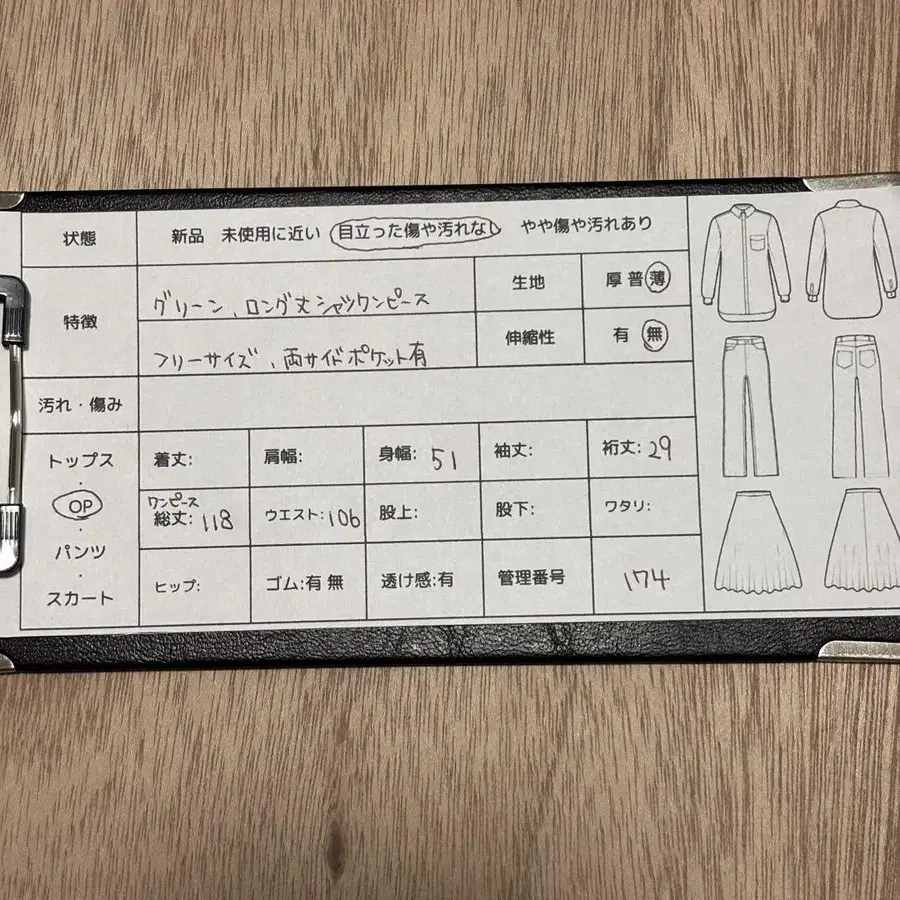 状態 新品 未使用に近い 目立った傷や汚れなし やや傷や汚れあり
特徴 グリーン、ロング丈シャツワンピース 生地 厚 普 薄
フリーサイズ、両サイドポケット有 伸縮性 有 無
汚れ・傷み
トップス 着丈: 肩幅: 身幅: 51 袖丈: 裄丈: 29
・
OP ワンピース
総丈: 118 ウエスト: 106 股上: 股下: ワタリ:
・
パンツ
・
スカート ヒップ: ゴム:有 無 透け感:有 管理番号 174